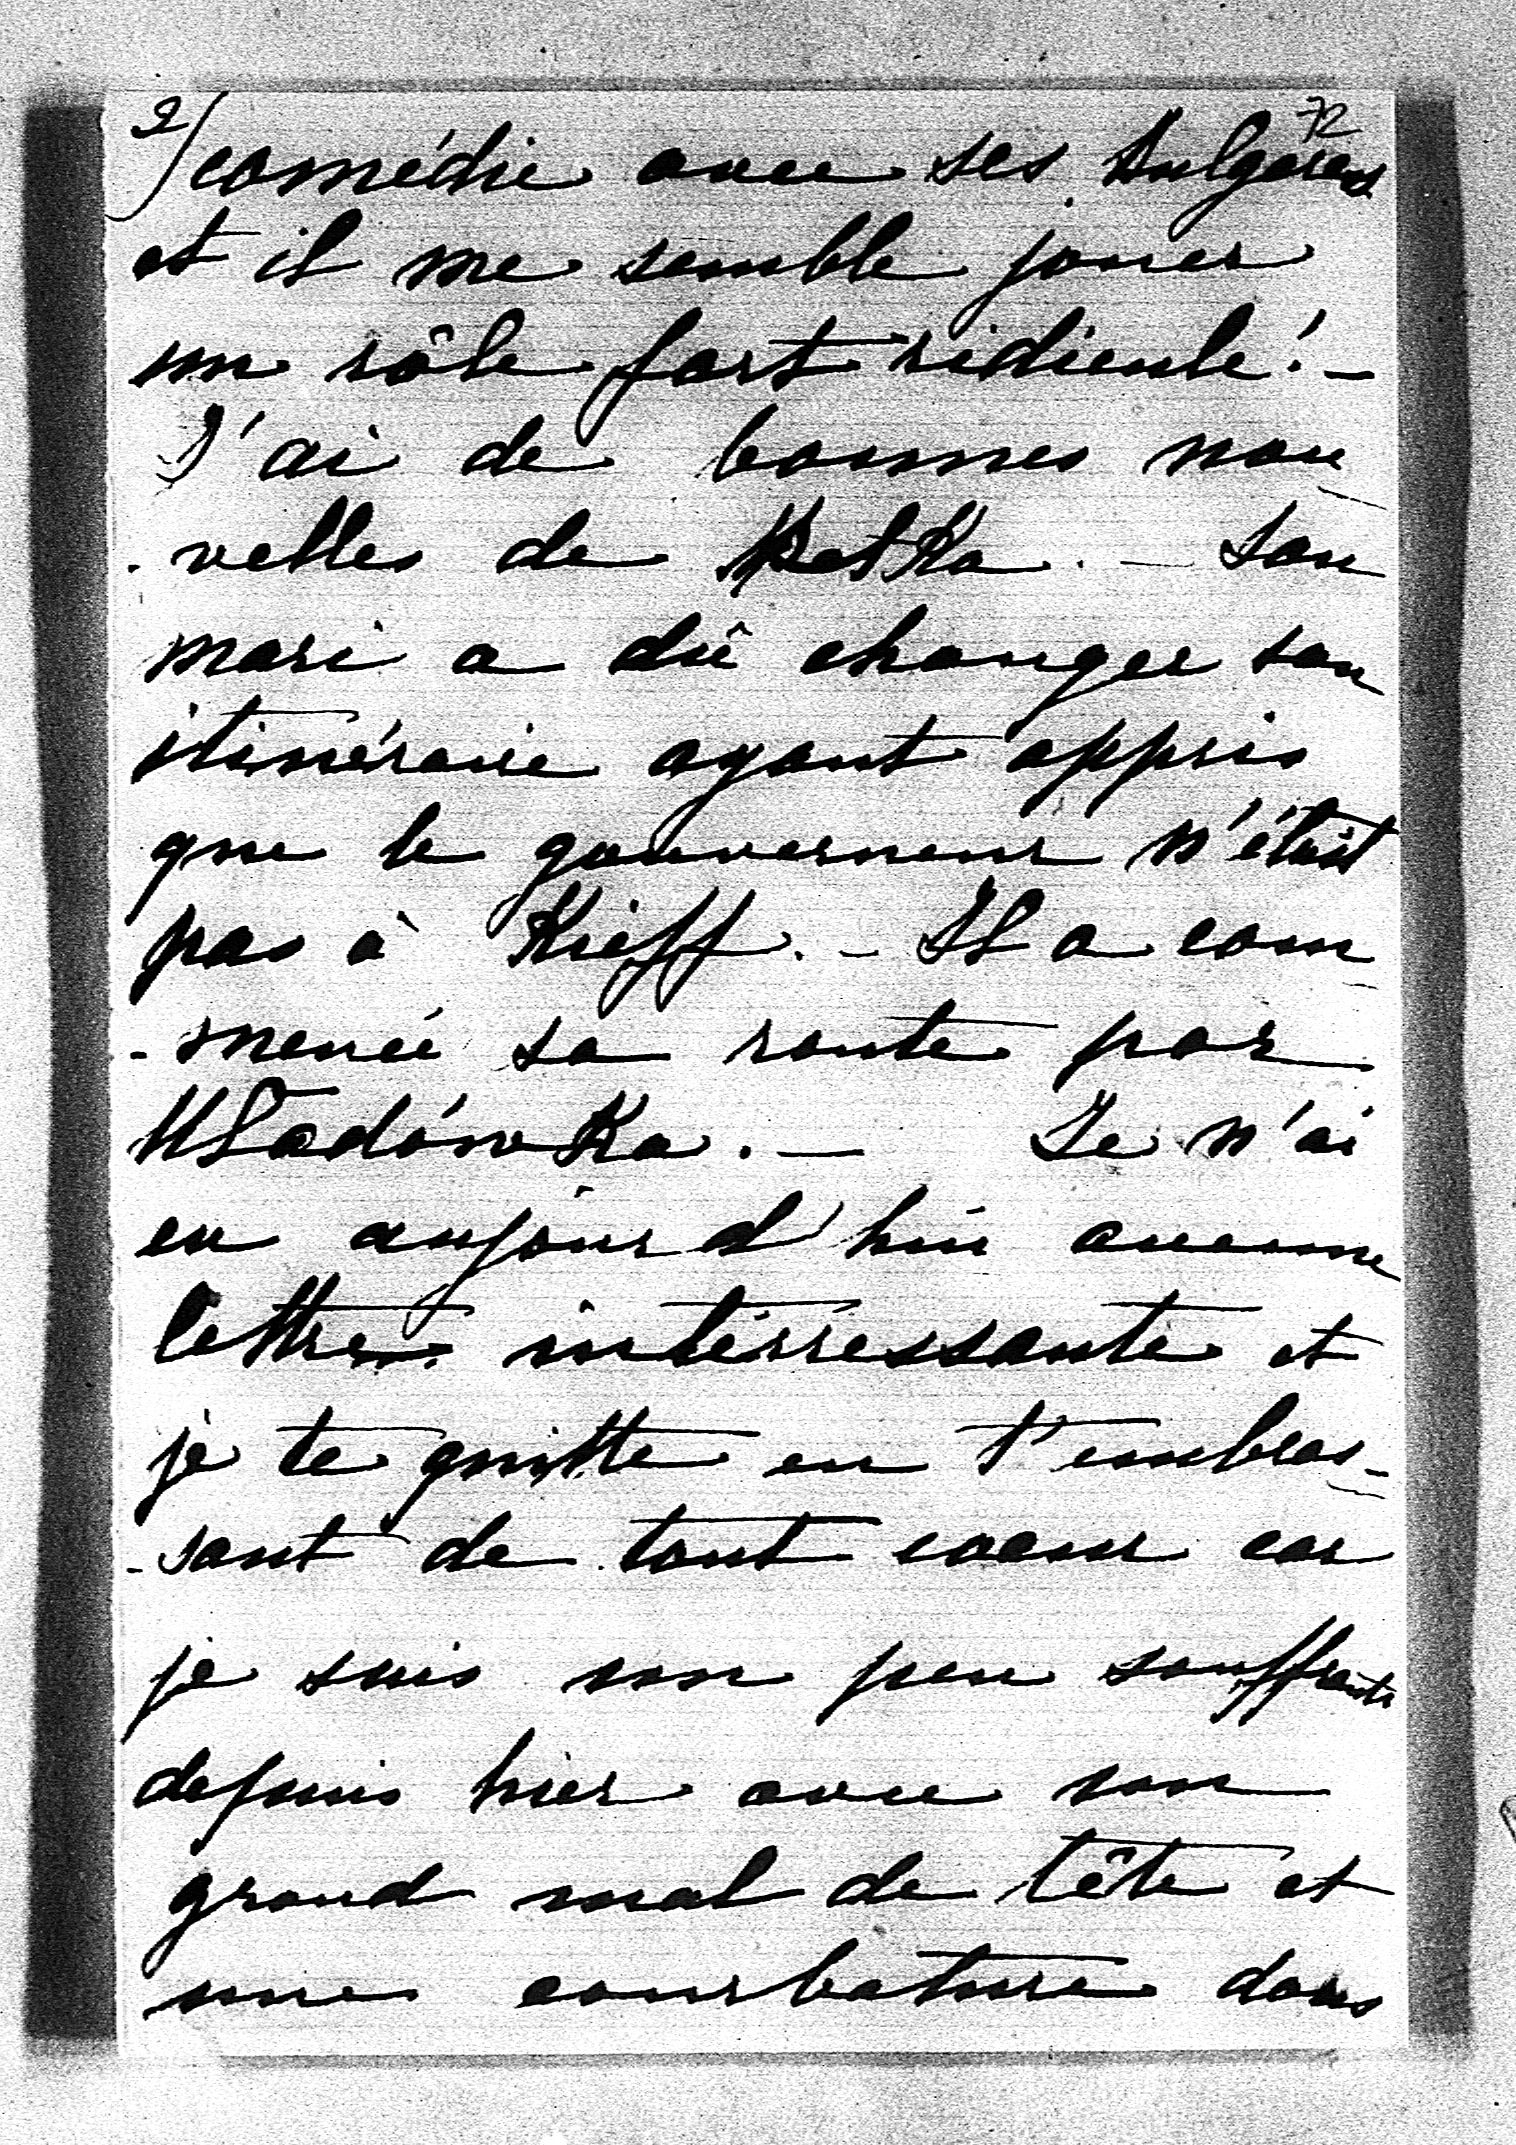 2/ 72
comédie avec ses Bulgares
et il me semble jouer
un rôle fort ridicule! —
J'ai de bonnes nou
- velles de Betka. — Son
mari a dû changer son
itinéraire ayant appris
que le gouverneur n'était
pas à Kieff. — Il a com
- mencé sa route par
Władówka. — Je n'ai
eu aujourd'hui aucune
lettre intérressante et
je te quitte en t'embras-
- sant de tout coeur car
je suis un peu souffrante
depuis hier avec un
grand mal de tête et
une courbature dans